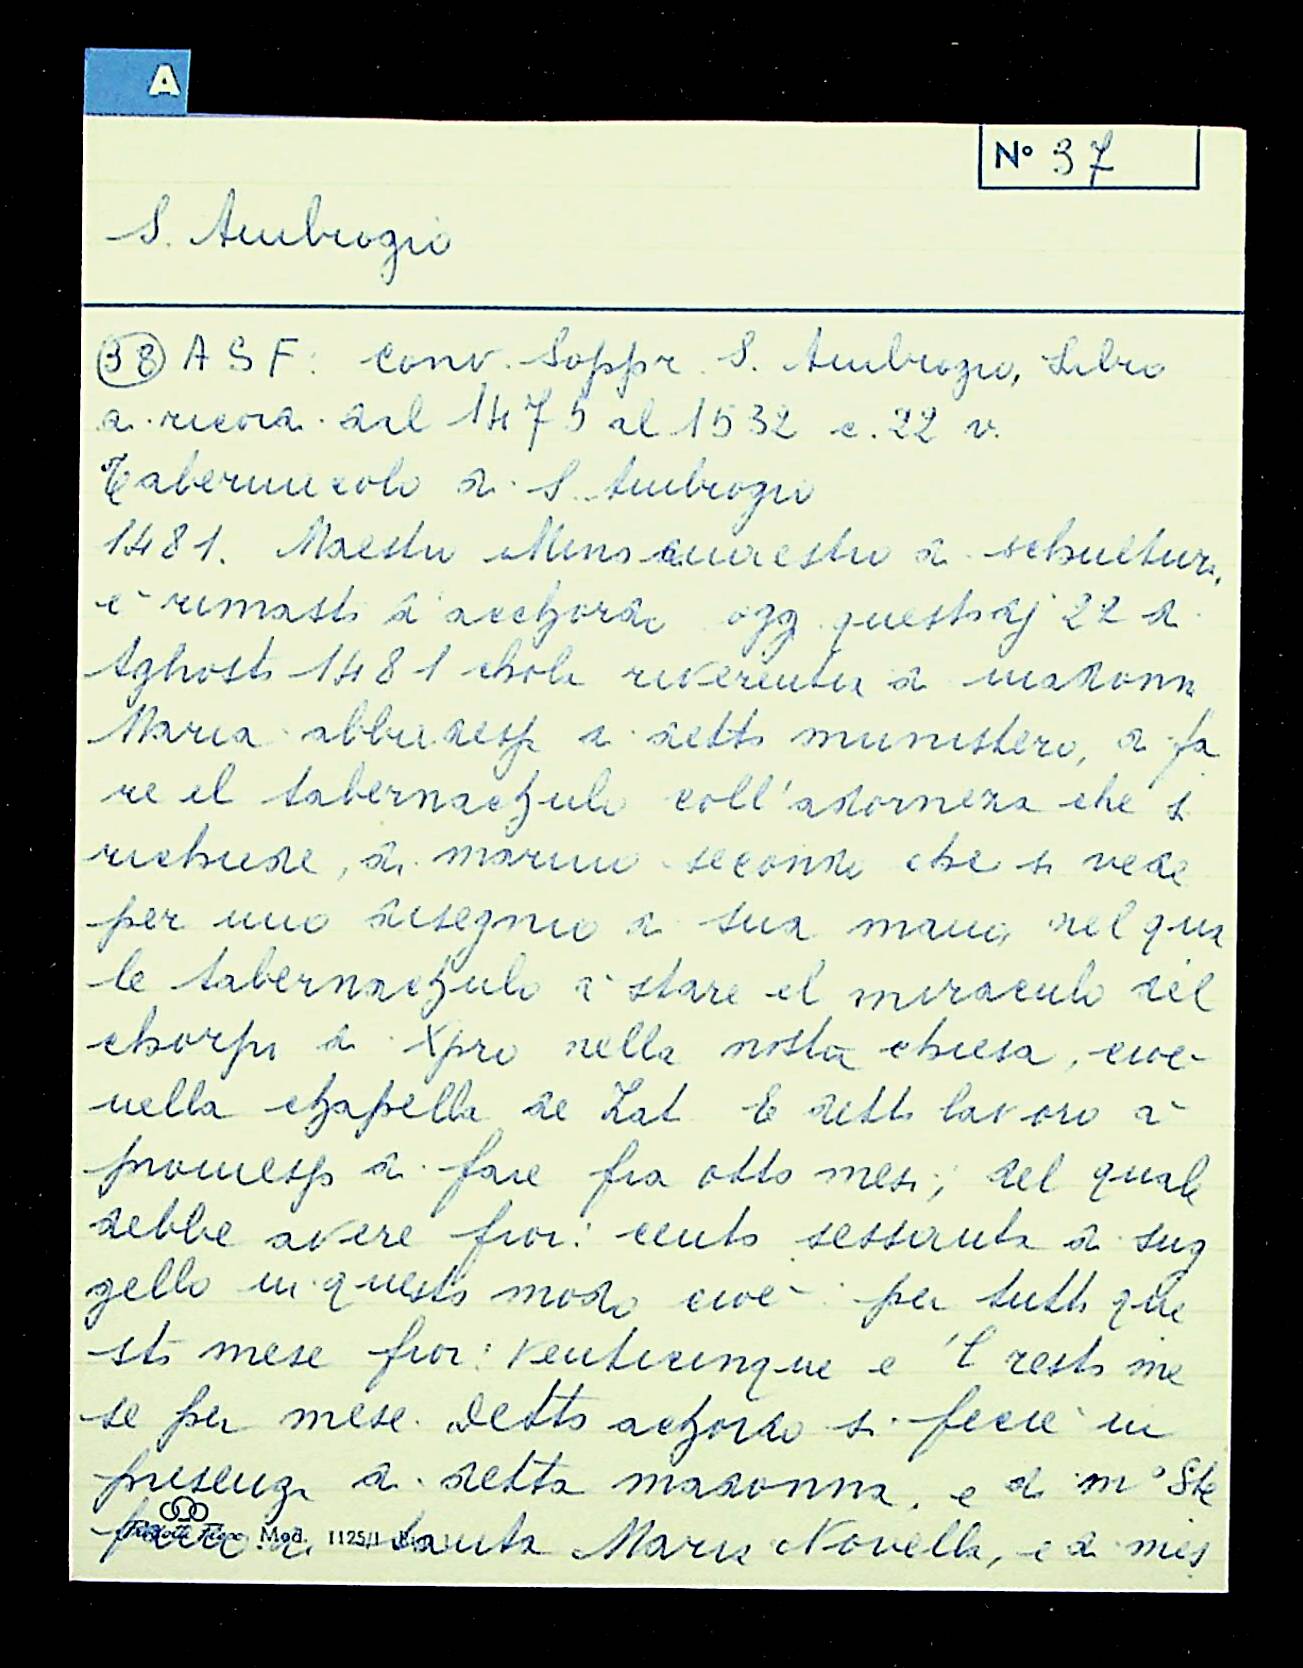 A
N° 37
S. Ambrogio
38 ASF: Conv. Soppr. S. Ambrogio, Libro
di ricordi dal 1475 al 1532 c. 22 v.
Tabernacolo di S. Ambrogio
1481. Maestro Mino maestro di schultura,
è rimasto d'acchordo oggi questo dì 22 di
Aghosto 1481 chola reverentia di madonna
Maria abbadessa di detto munistero, di fa
re el tabernachulo coll'adorneza che si
richiede, di marmo secondo che si vede
per uno disegnio di sua mano, nel qua
le tabernachulo à stare el miracolo del
chorpo di Xpro nella nostra chiesa, cioè
nella chapella de Lat E detto lavoro à
promesso di fare fra otto mesi; del quale
debbe avere fior: cento sessanta di sug
gello in questo modo cioè: per tutto que
sto mese fior: venticinque e 'l resto me
se per mese. Detto achordo si fecie in
presenza di detta madonna, e di m° Ste
fano di Santa Maria Novella, e di mes
Mod. 1125/1